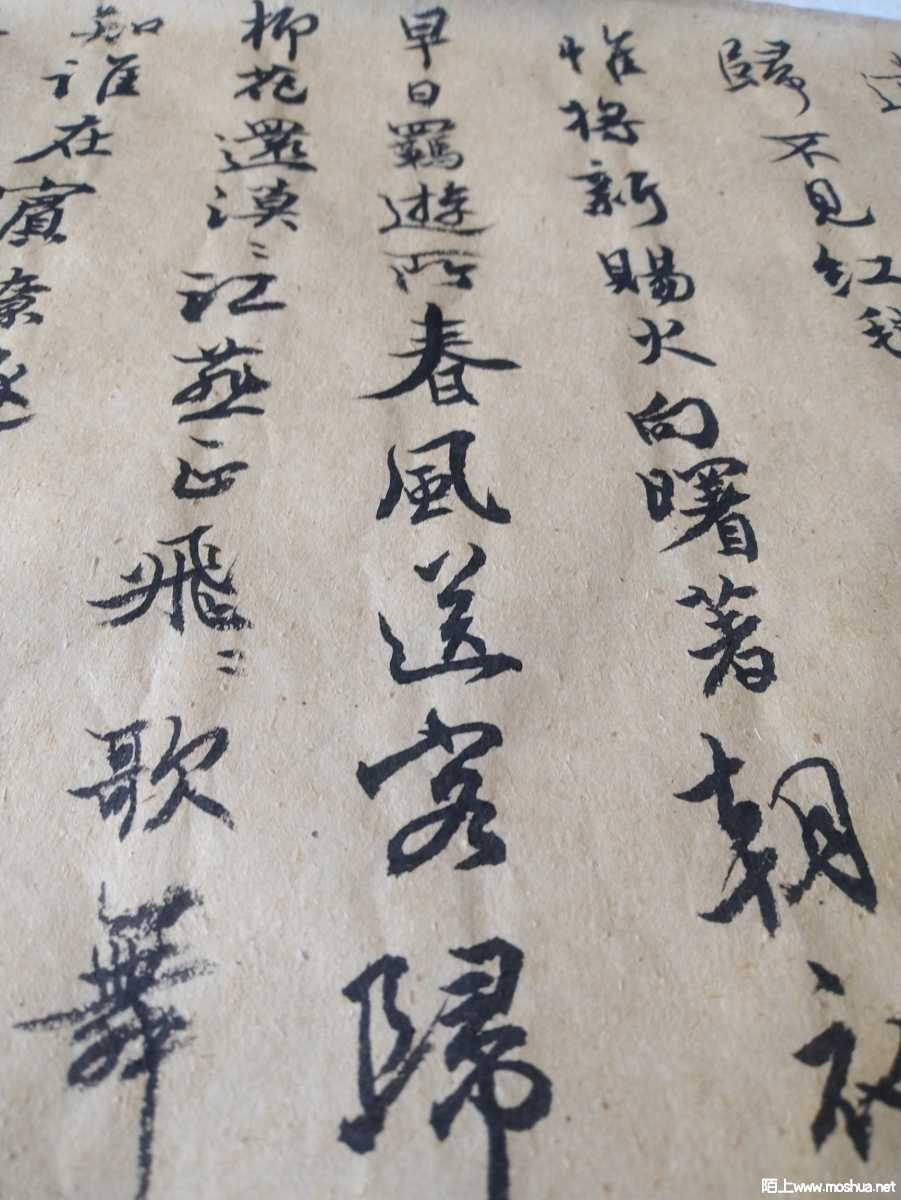 歸不見红毬
惟將新賜火向曙著朝
早日羈遊所春風送客歸
柳花還漠〻江燕正飛〻歌舞
知誰在賓僚逐
陌上www.moshua.net